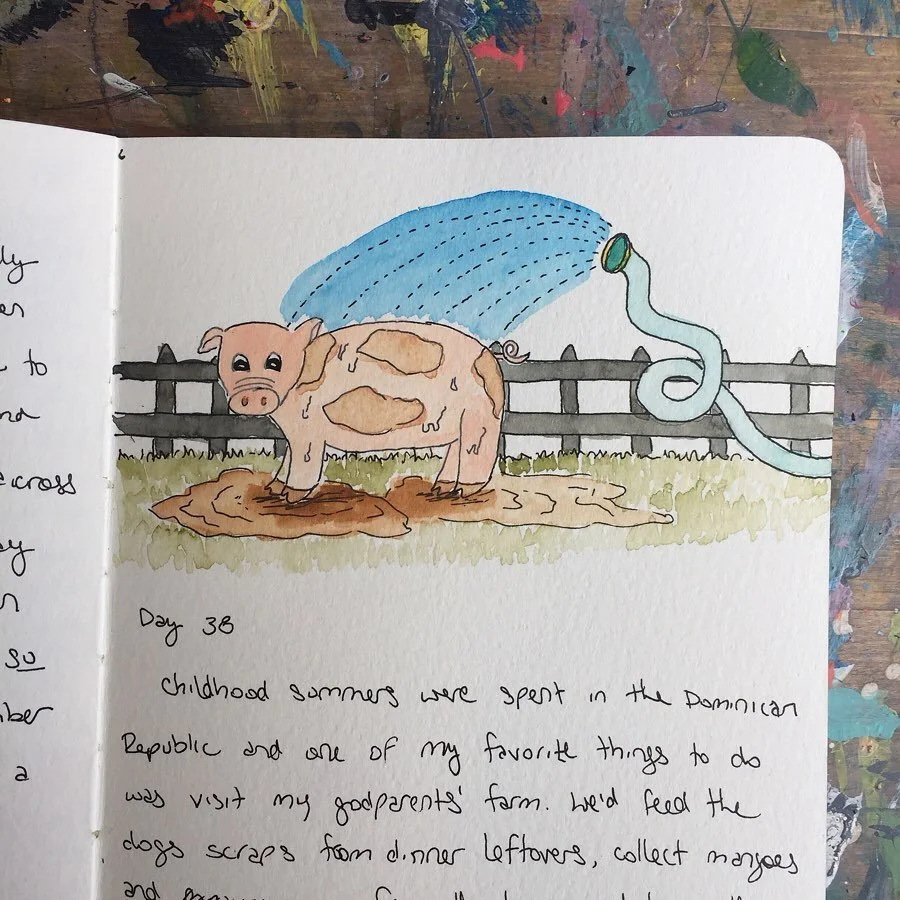 ly
to
across
so
a
Day 38
Childhood summers were spent in the Dominican
Republic and one of my favorite things to do
was visit my godparents' farm. We'd feed the
dogs scraps from dinner leftovers, collect mangoes
and